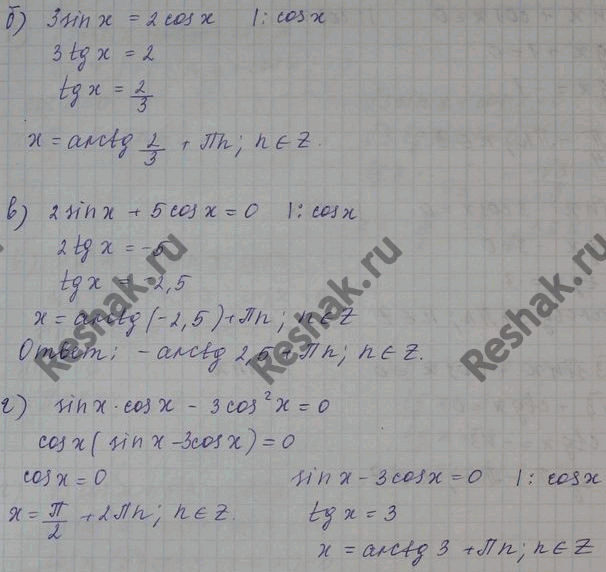 б) 3 sin x = 2 cos x |: cos x
3 tg x = 2
tg x = 2/3
x = arctg 2/3 + Πn; n ∈ Z.
в) 2 sin x + 5 cos x = 0 |: cos x
2 tg x = -5
tg x = -2,5
x = arctg (-2,5) + Πn; n ∈ Z
Ответ: - arctg 2,5 + Πn; n ∈ Z.
г) sin x · cos x - 3 cos² x = 0
cos x ( sin x - 3 cos x ) = 0
cos x = 0 sin x - 3 cos x = 0 |: cos x
x = Π/2 + 2Πn; n ∈ Z. tg x = 3
x = arctg 3 + Πn; n ∈ Z
Reshak.ru
Reshak.ru
Reshak.ru